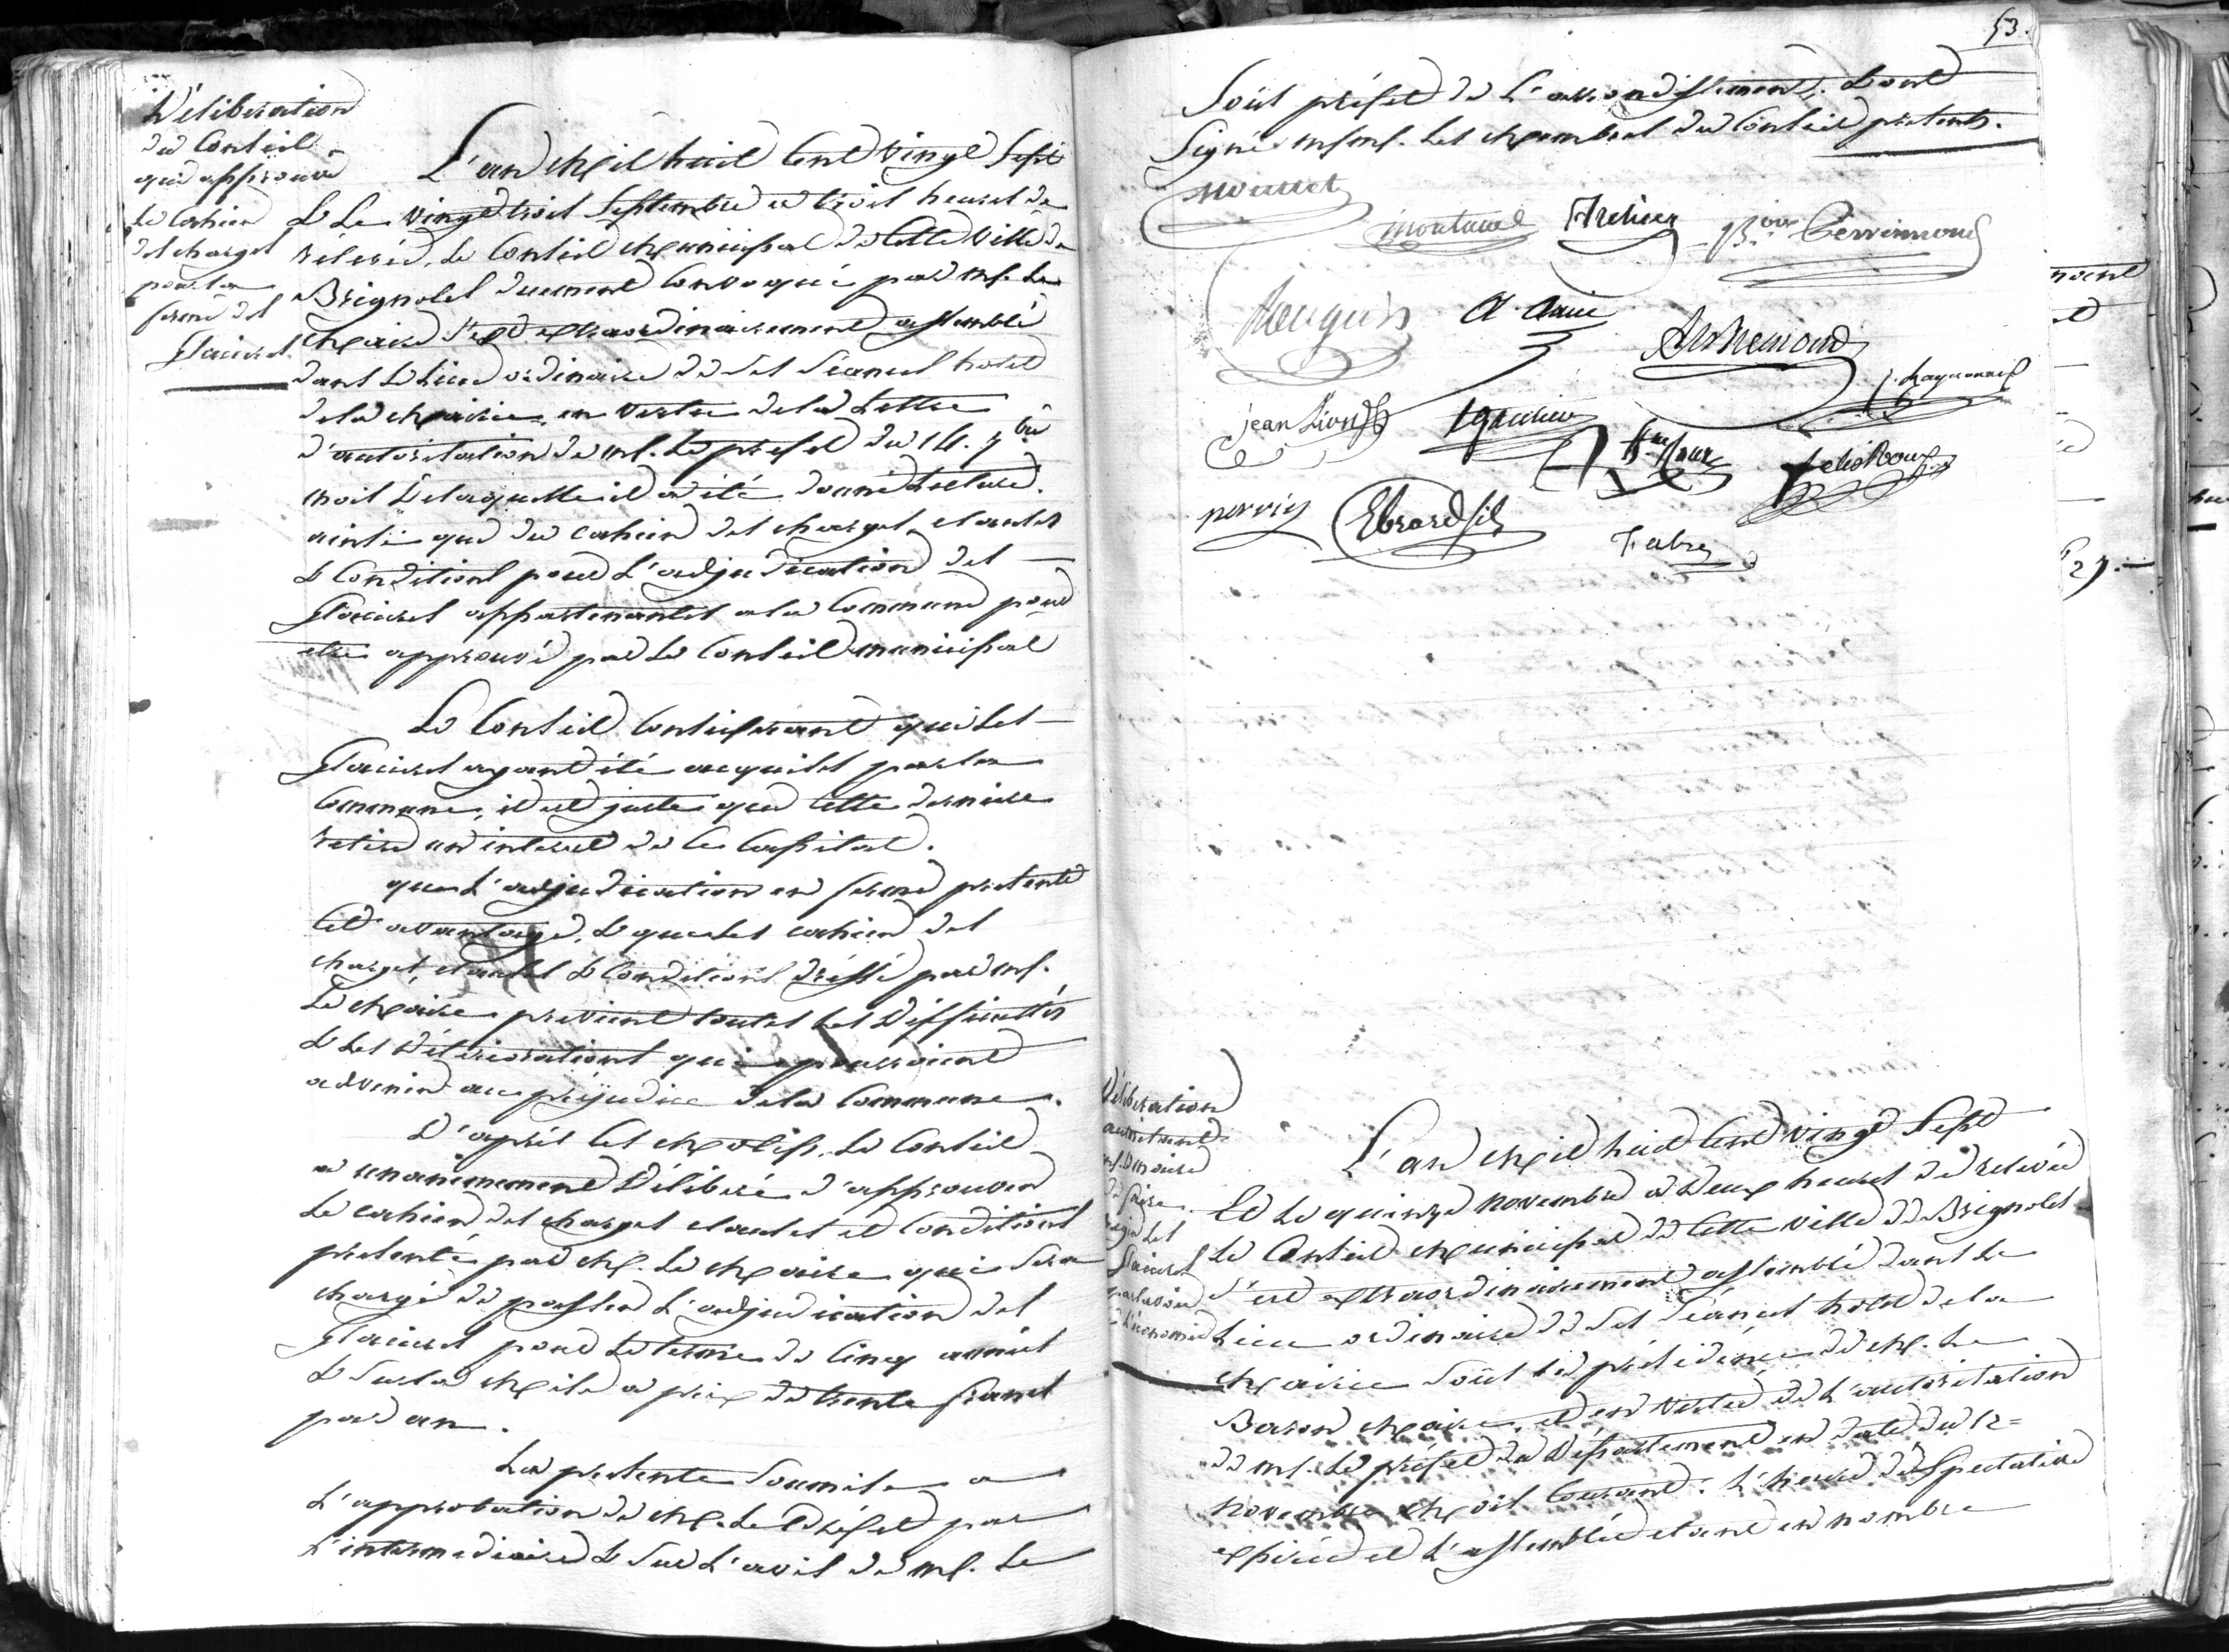 Déliberation
du Conseil
qui approuve
le Cahier
des charges
pour la
ferme des
Glacieres
L'an Mil huit Cent vingt Sept
& Le vingt trois Septembre a trois heures de
relevée, Le Conseil Municipal de Cette Ville de
Brignoles duement Convoqué par mr. Le
Maire s'est extraordinairement assemblé
dans Le Lieu ordinaire de ses Séances hotel
de la Mairie, en vertu de la Lettre
d'autorisation de mr. Le prefet du 14. 7bre
mois De laquelle il a été donné Lecture.
ainsi que du cahier des charges, clauses
& Conditions pour L'adjudication des
Glacieres appartenantes a la Commune pour
etre approuvé par Le Conseil municipal
Le Conseil Considerant que Les
Glacieres ayant été acquises par la
Commune, il est juste que Cette derniere
retire un interet de Ce Capital.
que L'adjudication en ferme presente
Cet avantage, & que Les cahier des
charges, clauses & Conditions dressé par mr.
Le Maire previent toutes Les Difficultés
& Les Déteriorations qui pourroient
advenir au préjudice de la Commune.
D'après Ces Motifs, Le Conseil
a unanimement Déliberé d'approuver
Le cahier des charges clauses et Conditions
presenté par Mr. Le Maire qui Sera
chargé de passer L'adjudication des
Glacieres pour Le terme de Cinq années
& Sur la Mise a prix de trente francs
par an.
La presente Soumise a
L'approbation de Mr. Le Préfet par
L'intermediaire & Sur L'avis de mr. Le
53.
Sous préfet de L'arrondissement. & ont
Signé mrs. Les Membres du Conseil presents.
Moutet
Montaud
Bon Perrimond
Rouguin
A. Amic
jean Lion
J. Gautier
felix Roux
perrin
Ebrard fils
Fabre
Déliberation
autorisant
mr. Le maire
de faire
Les
Glacieres
par la voie
d'économie
L'an Mil huit Cent vingt Sept
Et Le quinze novembre a Deux heures de relevée
Le Conseil Municipal de Cette ville de Brignoles
S'est extraordinairement assemblé dans Le
Lieu ordinaire de ses Séances hotel de la
Mairie Sous La présidence de Mr. Le
Baron Maire, et en vertu de L'autorisation
de mr. Le préfet du Département en date du 12
novembre Mois Courant. L'heure d'Expectative
expirée et L'assemblée etant en nombre